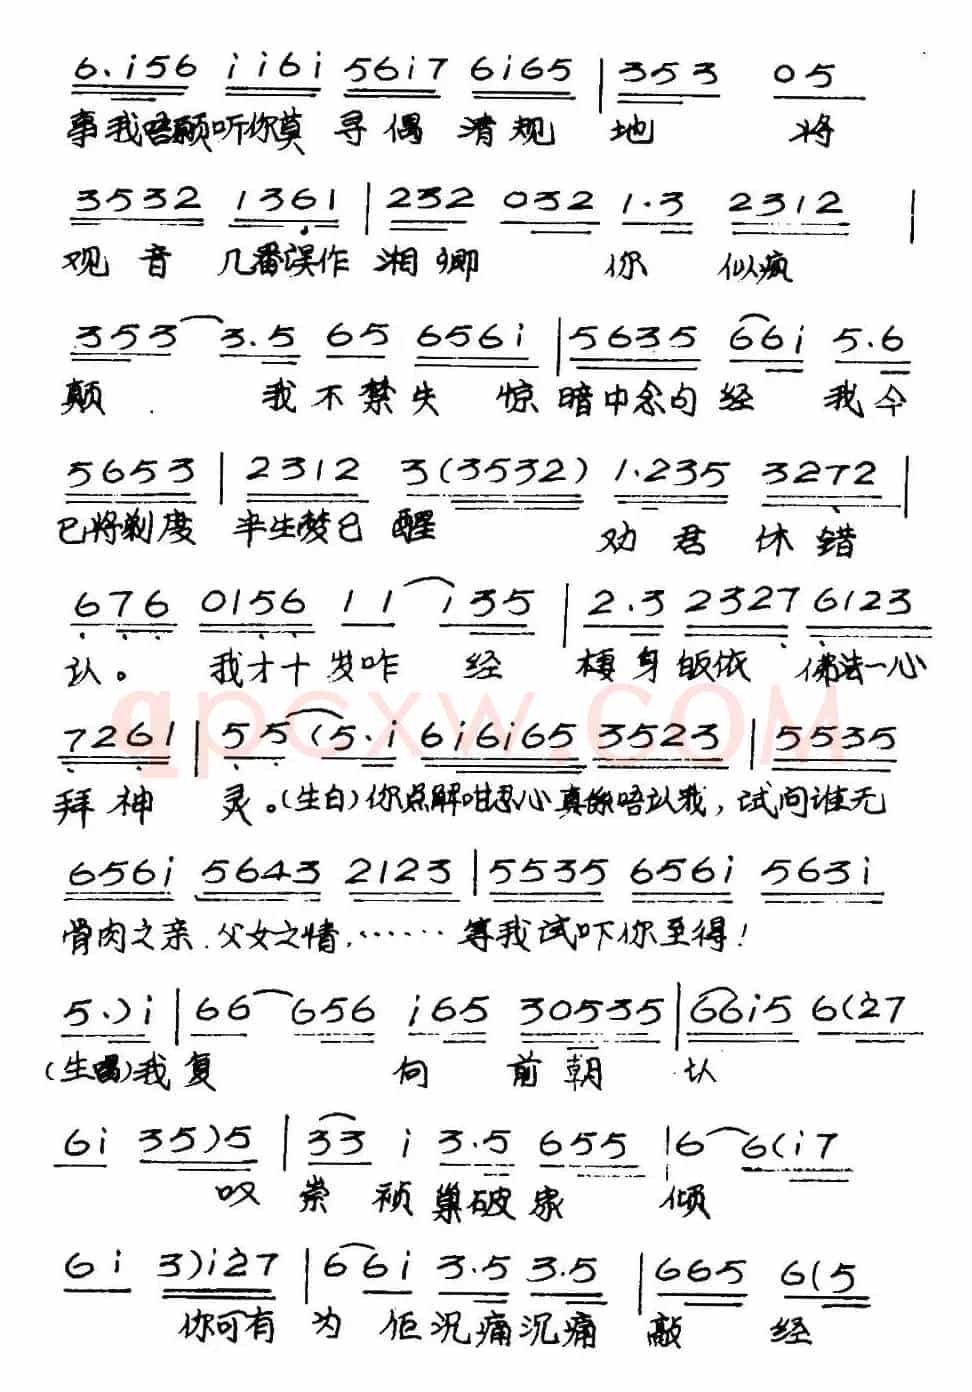 6.i56 ii6i 56i7 6i65 | 353 05
事我唔願听你莫 寻偶 清规 地 将
3532 1361 | 232 032 1.3 2312 |
观音 几番误作 湘卿 你 似疯
353 3.5 65 656i | 5635 66i 5.6
颠. 我不禁失 惊 暗中念句 经 我今
5653 | 2312 3(3532) 1.235 3272 |
已将剃度 半生梦已 醒 劝君 休错
676 0156 11 135 | 2.3 2327 6123
认。 我才十岁咋 经 棲身皈依 佛法一心
qpcxw.COM
7261 | 55(5.i 6i6i65 3523 | 5535
拜神 灵。(生白)你点解咁忍心真係唔认我,试问谁无
656i 5643 2123 | 5535 656i 563i
骨肉之亲.父女之情,······等我试吓你至得!
5.)i | 66 656 i65 30535 | 66i5 6(27
(生唱)我复 向 前朝 认
6i 35)5 | 33 i 3.5 655 | 6 6(i7
叹 崇 祯 巢破家 倾
6i 3)i27 | 66i 3.5 3.5 | 665 6(5
你可有 为 佢沉痛沉痛 敲 经